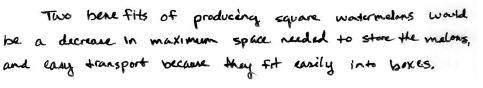 Two benefits of producing square watermelons would
be a decrease in maximum space needed to store the melons,
and easy transport because they fit easily into boxes.